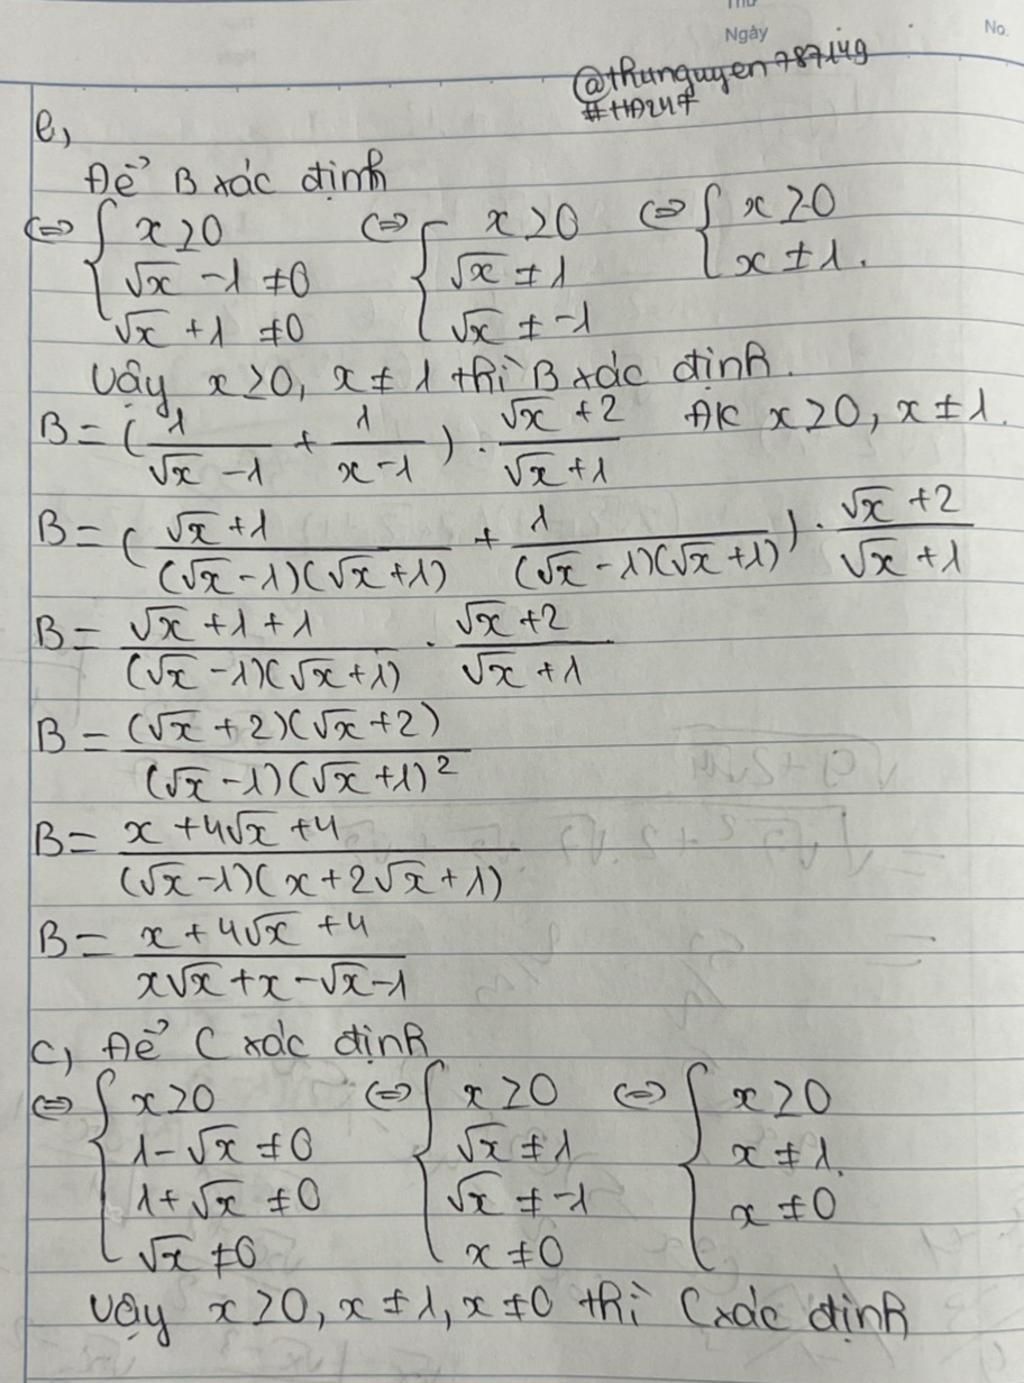 Thứ
Ngày
No.
@thunguyen787149
#HD247
e,
Để B xác định
⇔ { x ≥ 0 ⇔ { x ≥ 0 ⇔ { x ≥ 0
√x - 1 ≠ 0 √x ≠ 1 x ≠ 1.
√x + 1 ≠ 0 √x ≠ -1
Vậy x ≥ 0, x ≠ 1 thì B xác định.
B = (1/(√x - 1) + 1/(x - 1)) . (√x + 2)/(√x + 1) ĐK x ≥ 0, x ≠ 1.
B = ((√x + 1)/((√x - 1)(√x + 1)) + 1/((√x - 1)(√x + 1))) . (√x + 2)/(√x + 1)
B = (√x + 1 + 1)/((√x - 1)(√x + 1)) . (√x + 2)/(√x + 1)
B = ((√x + 2)(√x + 2))/((√x - 1)(√x + 1)²)
B = (x + 4√x + 4)/((√x - 1)(x + 2√x + 1))
B = (x + 4√x + 4)/(x√x + x - √x - 1)
c, Để C xác định
⇔ { x ≥ 0 ⇔ { x ≥ 0 ⇔ { x ≥ 0
1 - √x ≠ 0 √x ≠ 1 x ≠ 1.
1 + √x ≠ 0 √x ≠ -1 x ≠ 0
√x ≠ 0 x ≠ 0
Vậy x ≥ 0, x ≠ 1, x ≠ 0 thì C xác định